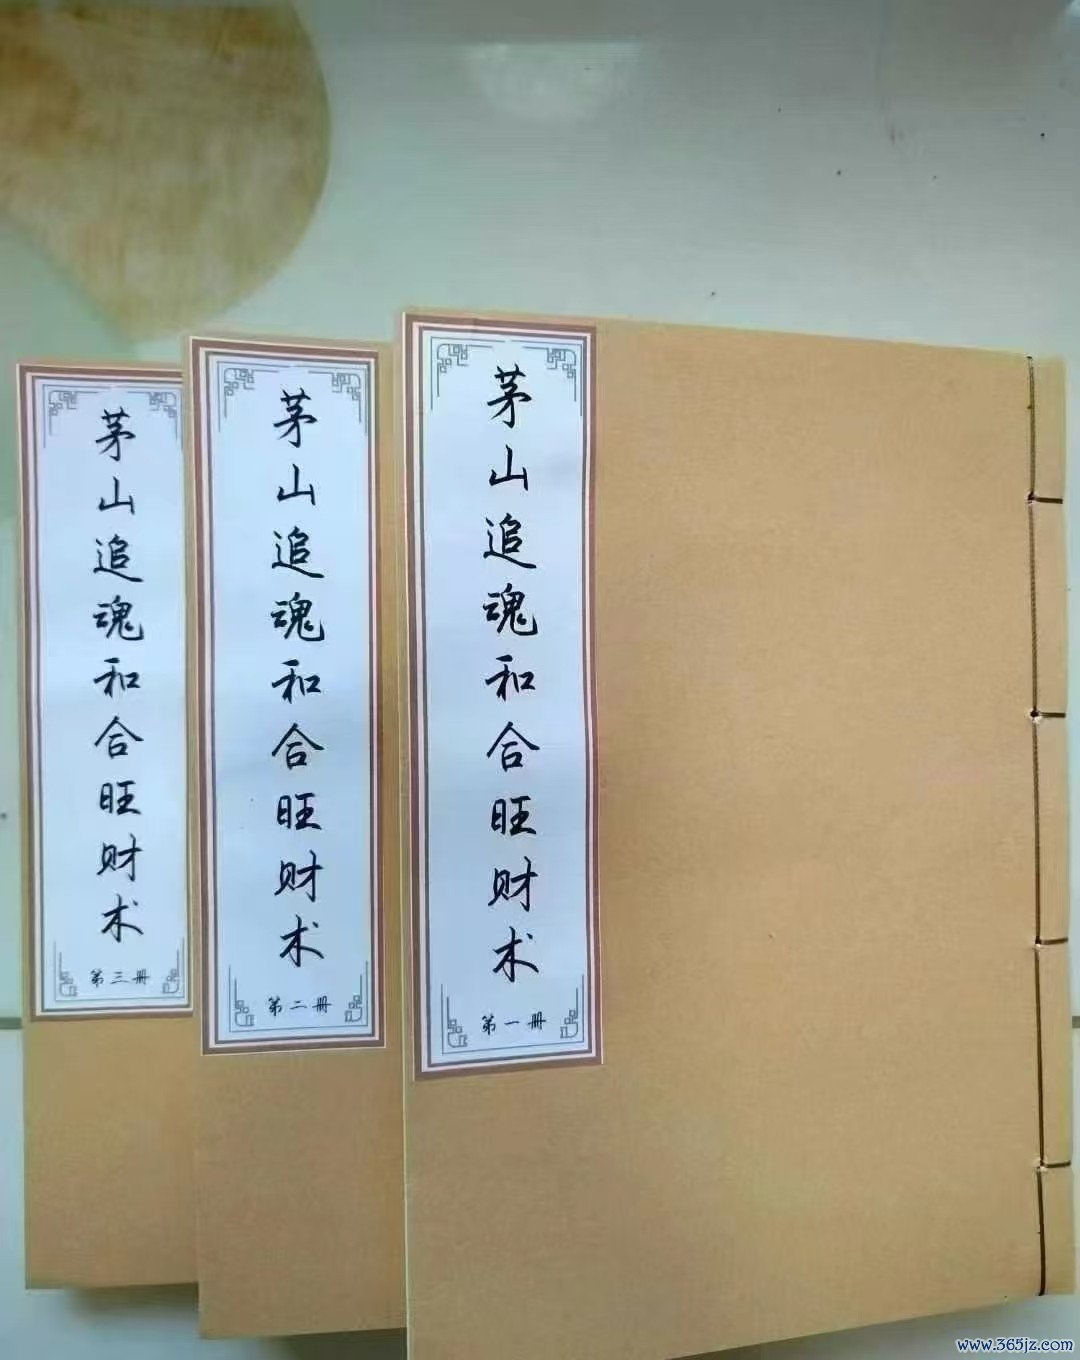 茅山追魂和合旺财术
第一册
茅山追魂和合旺财术
第二册
茅山追魂和合旺财术
第三册
www.365jz.com